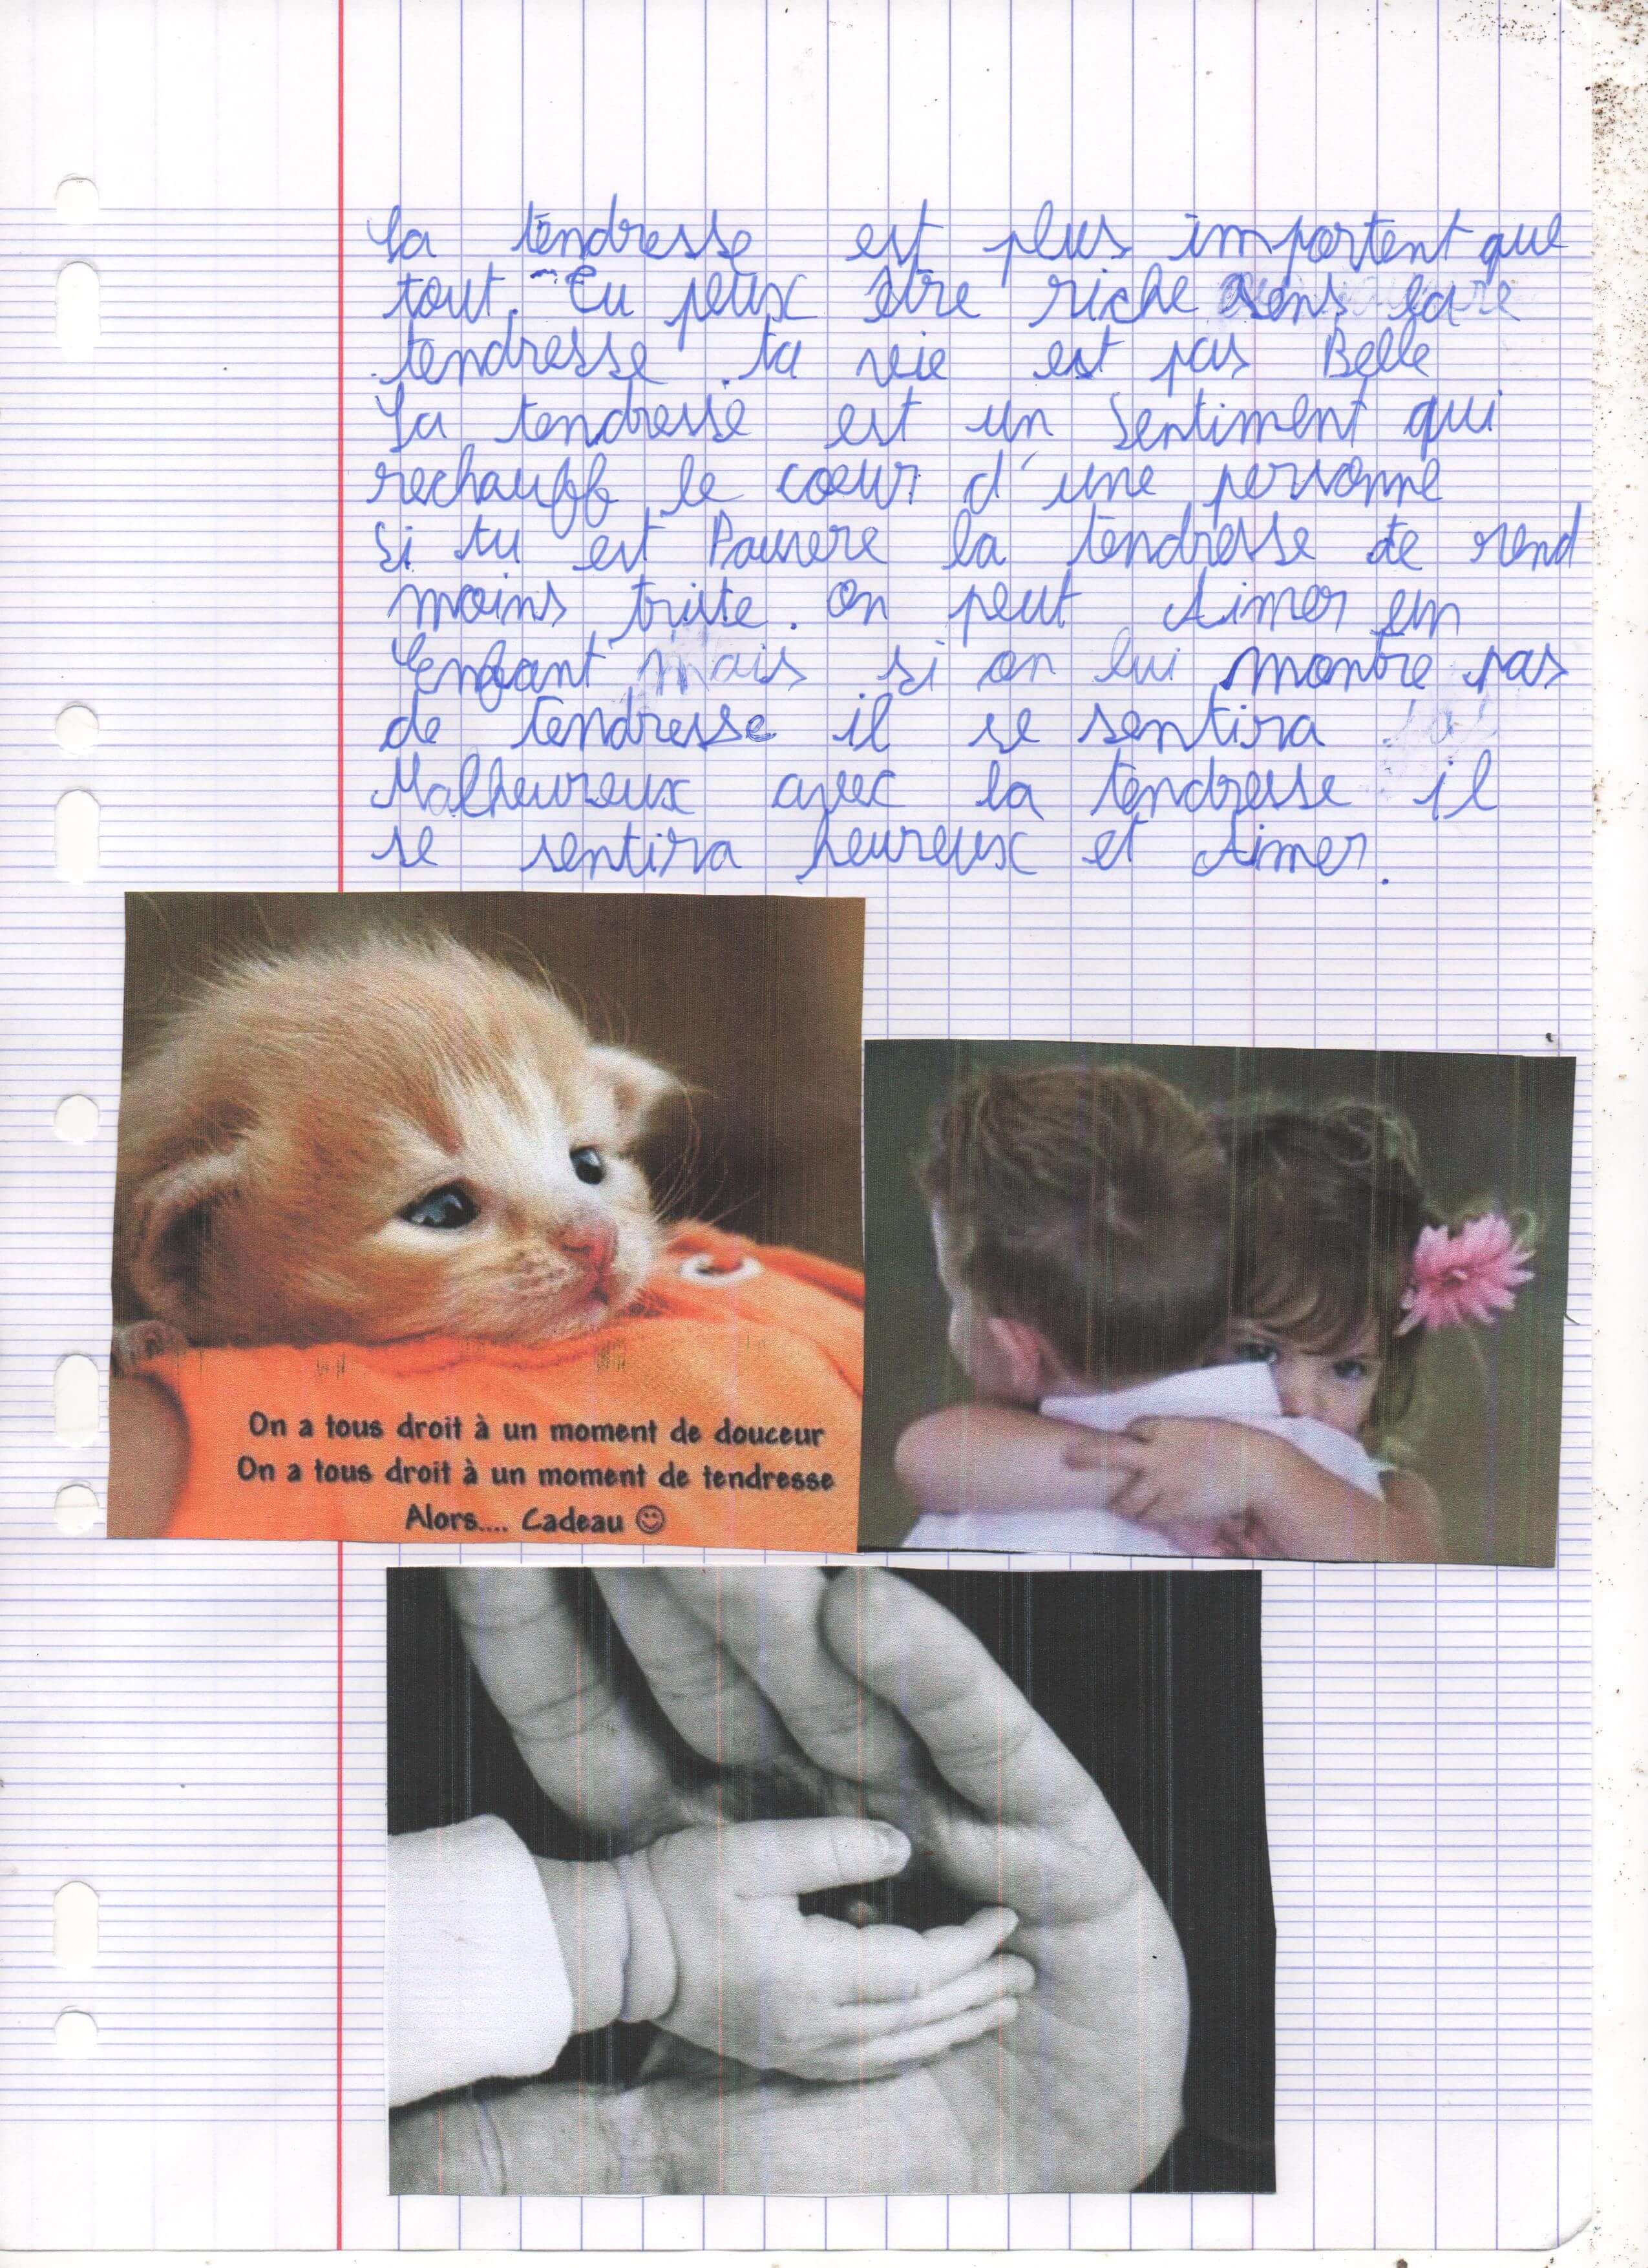 La tendresse est plus importent que
tout. Tu peux être riche sens
tendresse ta vie est pas Belle
La tendresse est un sentiment qui
rechauff le coeur d'une personne
si tu est Pauvere la tendresse te rend
moins triste. On peut Aimer un
Enfant Mais si on lui montre pas
de tendresse il se sentira
Malheureux avec la tendresse il
se sentira heureux et Aimer.
On a tous droit à un moment de douceur
On a tous droit à un moment de tendresse
Alors.... Cadeau ☺